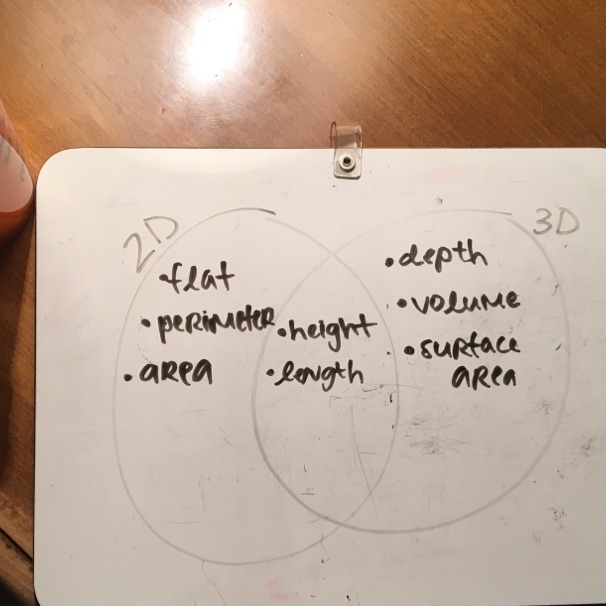 2D
• flat
• perimeter
• area
• height
• length
3D
• depth
• volume
• surface
area